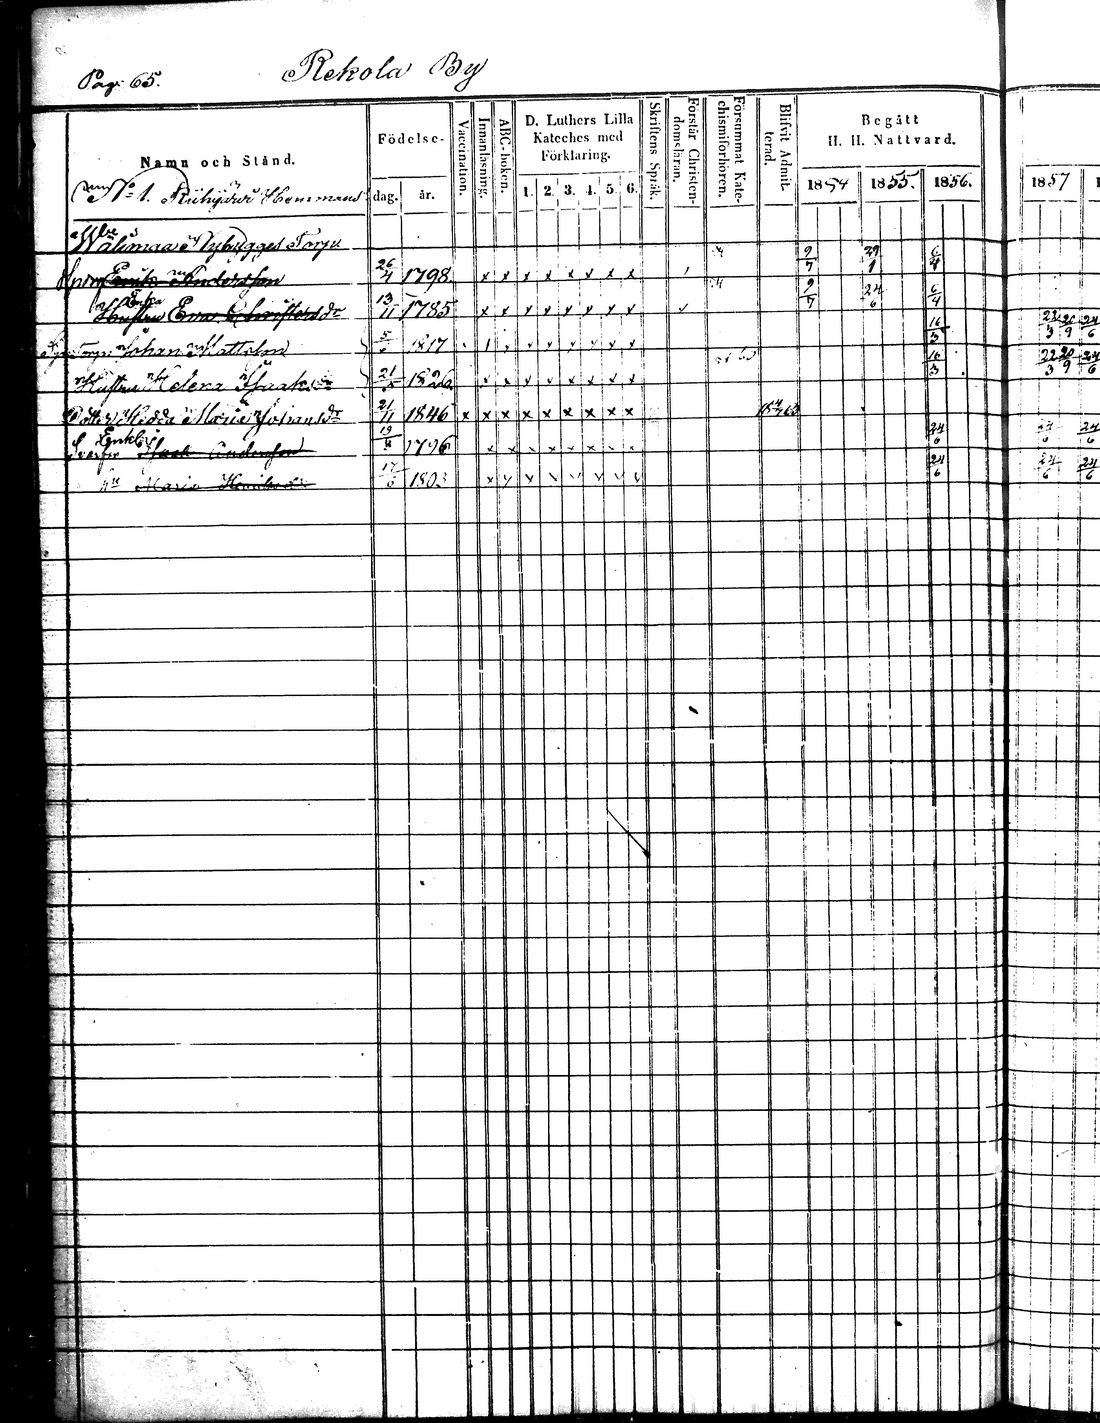 Pag. 65. Rekola By
Namn och Stånd.
Födelse-
dag. år.
Vaccination.
Innanläsning.
ABC-boken.
D. Luthers Lilla
Kateches med
Förklaring.
1. 2. 3. 4. 5. 6.
Skriftens Språk.
Förstår Christen-
domsläran.
Försummat Kate-
chismiförhören.
Blifvit Admit-
terad.
Begått
H. H. Nattvard.
1854 1855. 1856. 1857
No 1. Hemmans
Nybygges Torp
Andersson 26/4 1798. x x x x x x x x 9/7 6/4
Hustru Eva Christersdr 13/11 1785 x x x x x x x x 9/7 24/6 6/4
Johan Mattsson 5/6 1817 16/3 22/3 20/9 24/6
Hustru Helena Isaksdr 1826 x x x x x x x x 16/3 22/3 20/9 24/6
Dotter Hedda Maria Johansdr 21/11 1846 x x x x x x x x x
Isak Andersson 1796 x x x x x 24/6 24/6 24/6
Maria Henriksdr 17/6 1803 x 24/6 24/6 24/6